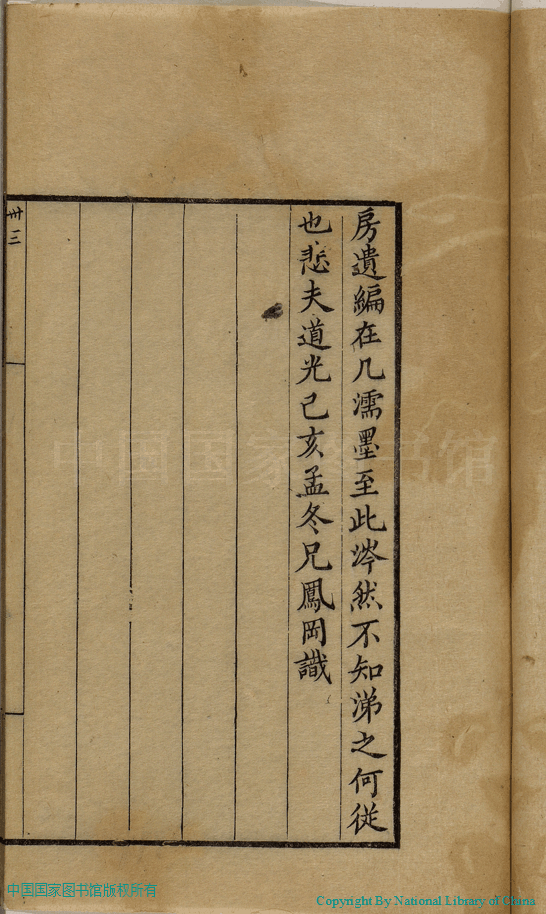 房遺編在几濡墨至此涔然不知涕之何從
也悲夫道光己亥孟冬兄鳳岡識
卅三
中国国家图书馆
中国国家图书馆版权所有
Copyright By National Library of China